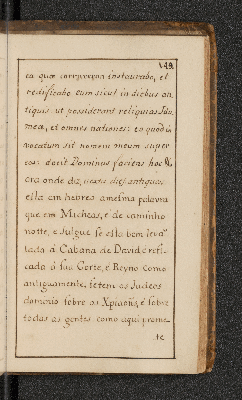 149
ea quæ corruerant instaurabo, et
redificabo eum sicut in diebus an
tiquis. ut possideant reliquias Idu
mea, et omnes nationes: eo quod in
vocatum sit nomen meum super
eos: dicit Dominus faciens hæc
ora onde diz, dies antiquos
esta em hebreo a mesma palavra
que em Micheas, e de caminho
note, e Julgue se esta bem levã
tada a Cabana de David e reefi
cada à sua Corte, e Reyno como
antiguamente, se tem os Judeos
dominio sobre os Xpãos, e sobre
todas as gentes como aqui prome
te